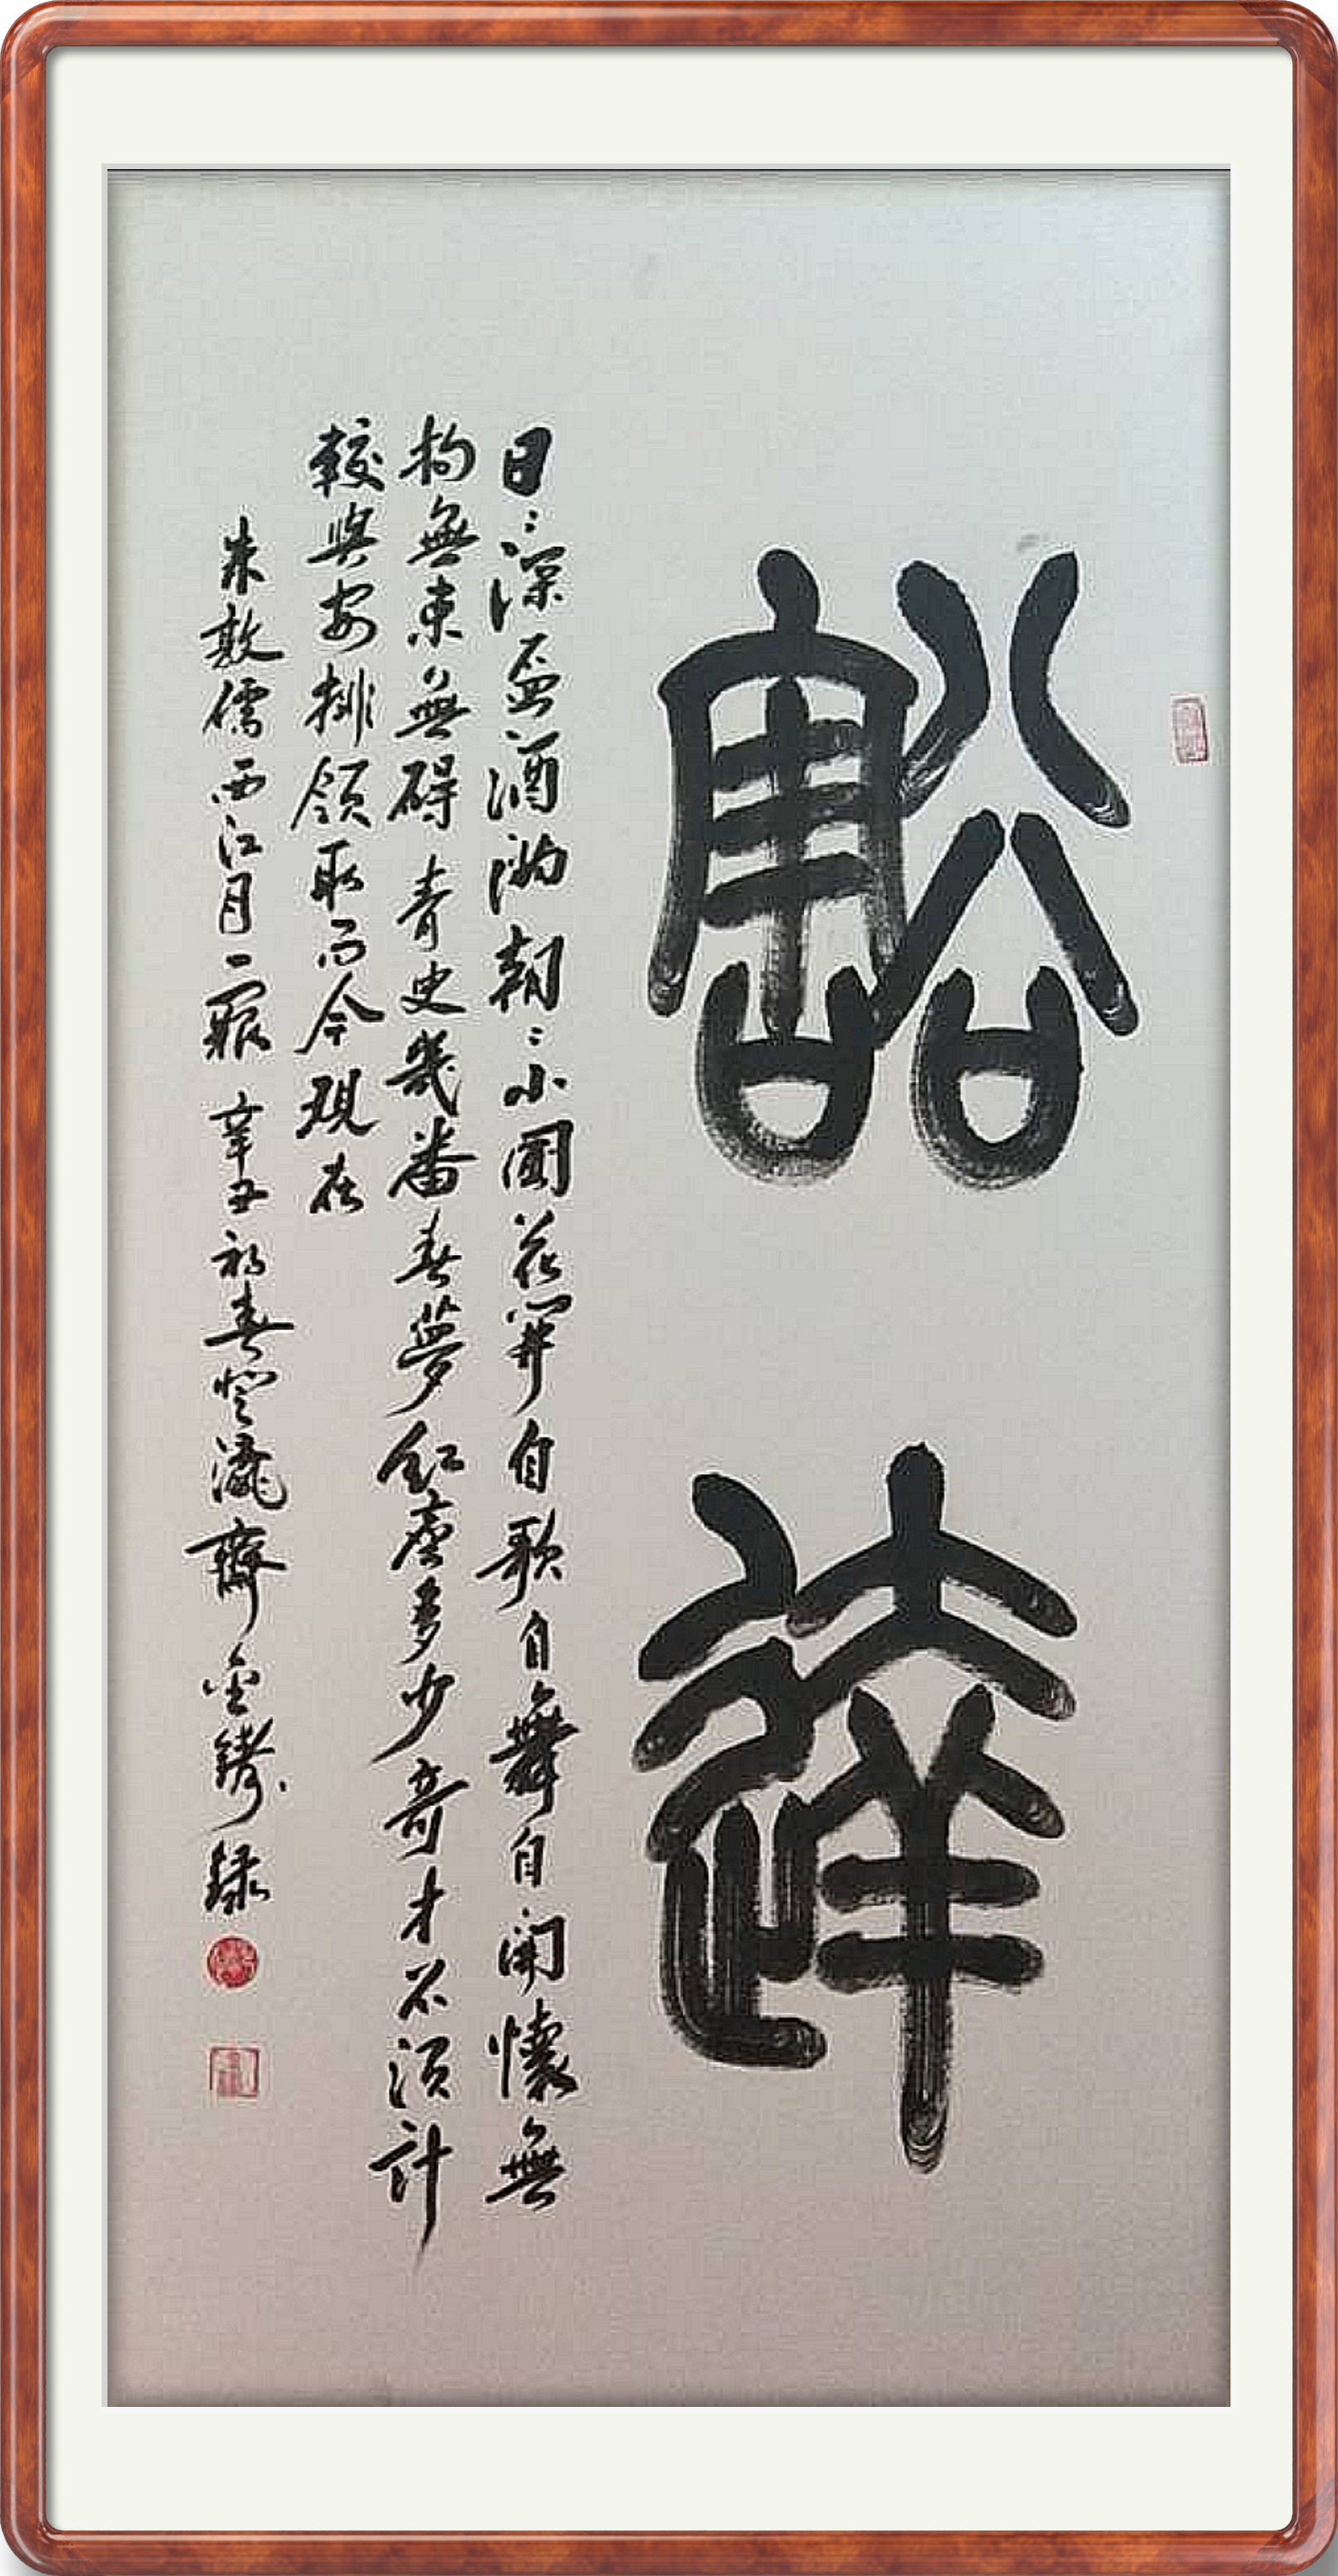 豁達
日々深盃酒滿朝々小圃花開自歌自舞自開懷無
拘無束無碍青史幾番春夢紅塵多少奇才不須計
較與安排領取而今現在
朱敦儒西江月一闋辛丑初春齋金錄